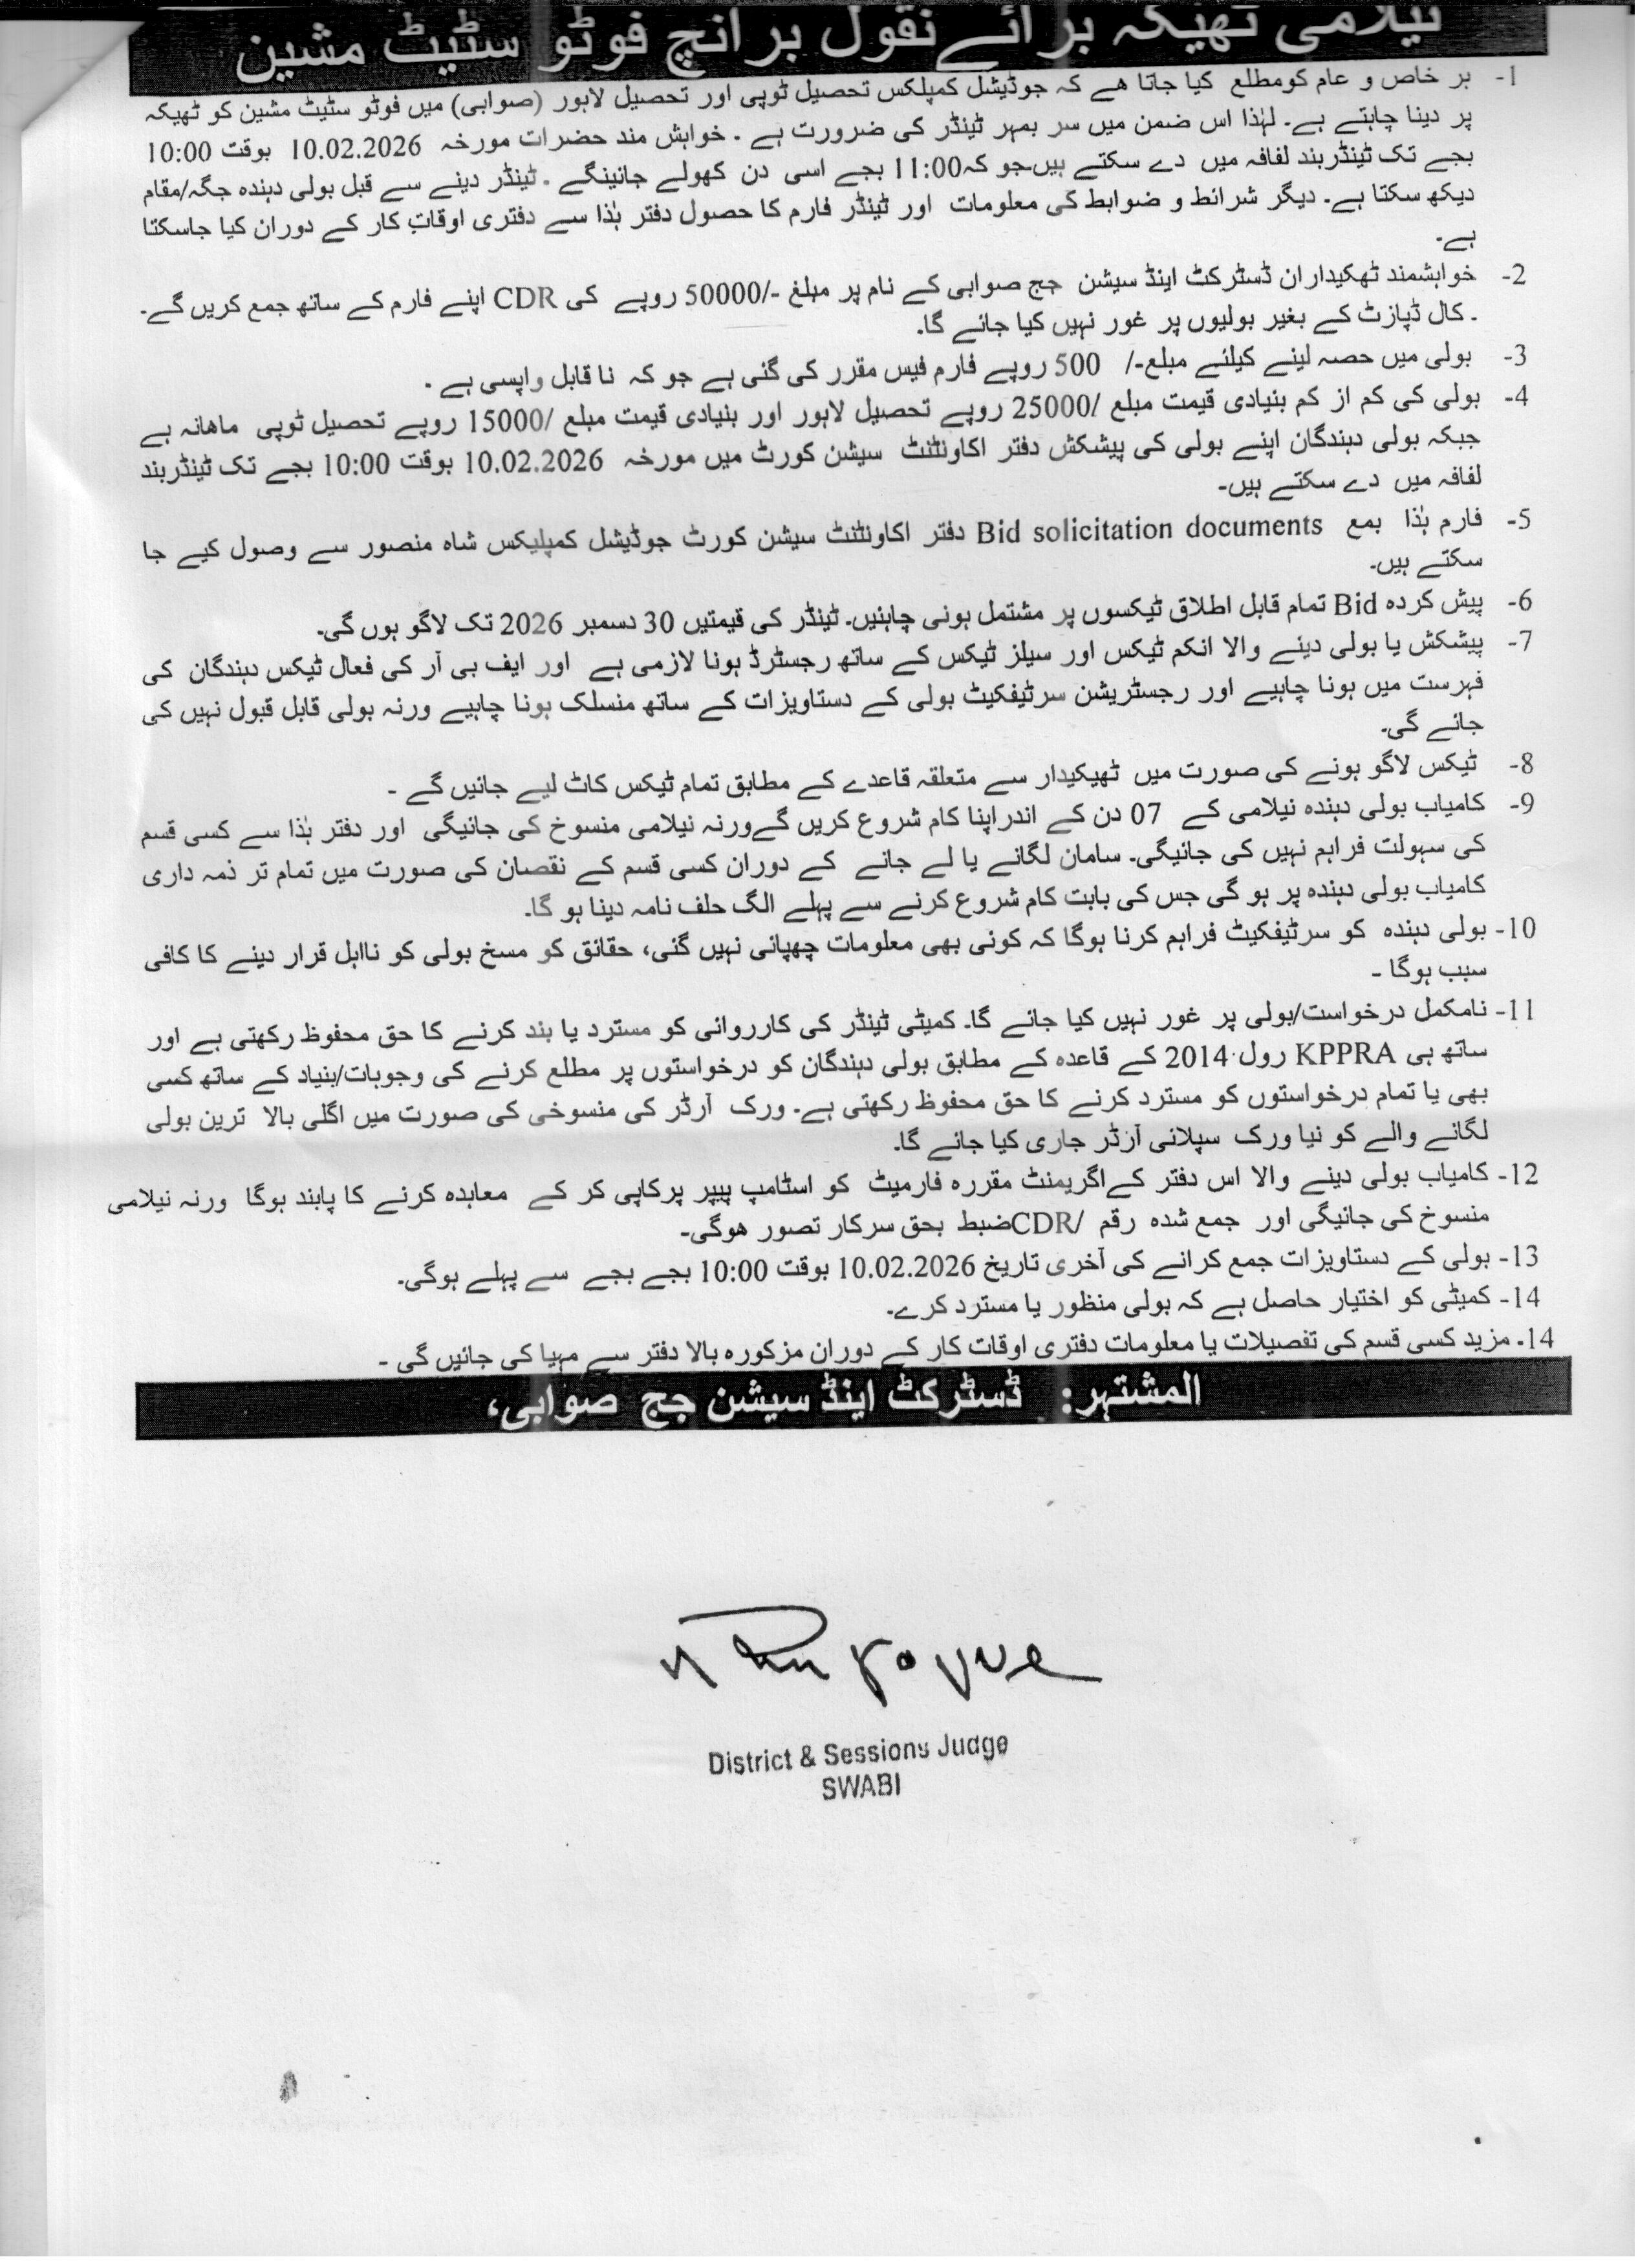 نیلامی ٹھیکہ برائے نقول برانچ فوٹو سٹیٹ مشین
1- ہر خاص و عام کومطلع کیا جاتا ھے کہ جوڈیشل کمپلکس تحصیل ٹوپی اور تحصیل لاہور (صوابی) میں فوٹو سٹیٹ مشین کو ٹھیکہ
پر دینا چاہتے ہے۔ لہٰذا اس ضمن میں سر بمہر ٹینڈر کی ضرورت ہے ۔ خواہش مند حضرات مورخہ 10.02.2026 بوقت 10:00
بجے تک ٹینڈربند لفافہ میں دے سکتے ہیں۔جو کہ11:00 بجے اسی دن کھولے جائینگے ۔ ٹینڈر دینے سے قبل بولی دہندہ جگہ/مقام
دیکھ سکتا ہے۔ دیگر شرائط و ضوابط کی معلومات اور ٹینڈر فارم کا حصول دفتر ہٰذا سے دفتری اوقاتِ کار کے دوران کیا جاسکتا
ہے۔
2- خواہشمند ٹھکیداران ڈسٹرکٹ اینڈ سیشن جج صوابی کے نام پر مبلغ -/50000 روپے کی CDR اپنے فارم کے ساتھ جمع کریں گے۔
۔ کال ڈپازٹ کے بغیر بولیوں پر غور نہیں کیا جائے گا۔
3- بولی میں حصہ لینے کیلئے مبلغ-/ 500 روپے فارم فیس مقرر کی گئی ہے جو کہ نا قابل واپسی ہے ۔
4- بولی کی کم از کم بنیادی قیمت مبلغ /25000 روپے تحصیل لاہور اور بنیادی قیمت مبلغ /15000 روپے تحصیل ٹوپی ماھانہ ہے
جبکہ بولی دہندگان اپنے بولی کی پیشکش دفتر اکاونٹنٹ سیشن کورٹ میں مورخہ 10.02.2026 بوقت 10:00 بجے تک ٹینڈربند
لفافہ میں دے سکتے ہیں۔
5- فارم ہٰذا بمع Bid solicitation documents دفتر اکاونٹنٹ سیشن کورٹ جوڈیشل کمپلیکس شاہ منصور سے وصول کیے جا
سکتے ہیں۔
6- پیش کردہ Bid تمام قابل اطلاق ٹیکسوں پر مشتمل ہونی چاہئیں۔ ٹینڈر کی قیمتیں 30 دسمبر 2026 تک لاگو ہوں گی۔
7- پیشکش یا بولی دینے والا انکم ٹیکس اور سیلز ٹیکس کے ساتھ رجسٹرڈ ہونا لازمی ہے اور ایف بی آر کی فعال ٹیکس دہندگان کی
فہرست میں ہونا چاہیے اور رجسٹریشن سرٹیفکیٹ بولی کے دستاویزات کے ساتھ منسلک ہونا چاہیے ورنہ بولی قابل قبول نہیں کی
جائے گی۔
8- ٹیکس لاگو ہونے کی صورت میں ٹھیکیدار سے متعلقہ قاعدے کے مطابق تمام ٹیکس کاٹ لیے جائیں گے ۔
9- کامیاب بولی دہندہ نیلامی کے 07 دن کے اندراپنا کام شروع کریں گےورنہ نیلامی منسوخ کی جائیگی اور دفتر ہٰذا سے کسی قسم
کی سہولت فراہم نہیں کی جائیگی۔ سامان لگانے یا لے جانے کے دوران کسی قسم کے نقصان کی صورت میں تمام تر ذمہ داری
کامیاب بولی دہندہ پر ہو گی جس کی بابت کام شروع کرنے سے پہلے الگ حلف نامہ دینا ہو گا۔
10- بولی دہندہ کو سرٹیفکیٹ فراہم کرنا ہوگا کہ کوئی بھی معلومات چھپائی نہیں گئی، حقائق کو مسخ بولی کو نااہل قرار دینے کا کافی
سبب ہوگا ۔
11- نامکمل درخواست/بولی پر غور نہیں کیا جائے گا۔ کمیٹی ٹینڈر کی کارروائی کو مسترد یا بند کرنے کا حق محفوظ رکھتی ہے اور
ساتھ ہی KPPRA رول 2014 کے قاعدہ کے مطابق بولی دہندگان کو درخواستوں پر مطلع کرنے کی وجوہات/بنیاد کے ساتھ کسی
بھی یا تمام درخواستوں کو مسترد کرنے کا حق محفوظ رکھتی ہے۔ ورک آرڈر کی منسوخی کی صورت میں اگلی بالا ترین بولی
لگانے والے کو نیا ورک سپلائی آرڈر جاری کیا جائے گا۔
12- کامیاب بولی دینے والا اس دفتر کےاگریمنٹ مقررہ فارمیٹ کو اسٹامپ پیپر پرکاپی کر کے معاہدہ کرنے کا پابند ہوگا ورنہ نیلامی
منسوخ کی جائیگی اور جمع شدہ رقم /CDRضبط بحق سرکار تصور ھوگی۔
13- بولی کے دستاویزات جمع کرانے کی آخری تاریخ 10.02.2026 بوقت 10:00 بجے بجے سے پہلے ہوگی۔
14- کمیٹی کو اختیار حاصل ہے کہ بولی منظور یا مسترد کرے۔
14۔ مزید کسی قسم کی تفصیلات یا معلومات دفتری اوقات کار کے دوران مزکورہ بالا دفتر سے مہیا کی جائیں گی ۔
المشتہر: ڈسٹرکٹ اینڈ سیشن جج صوابی،
District & Sessions Judge
SWABI